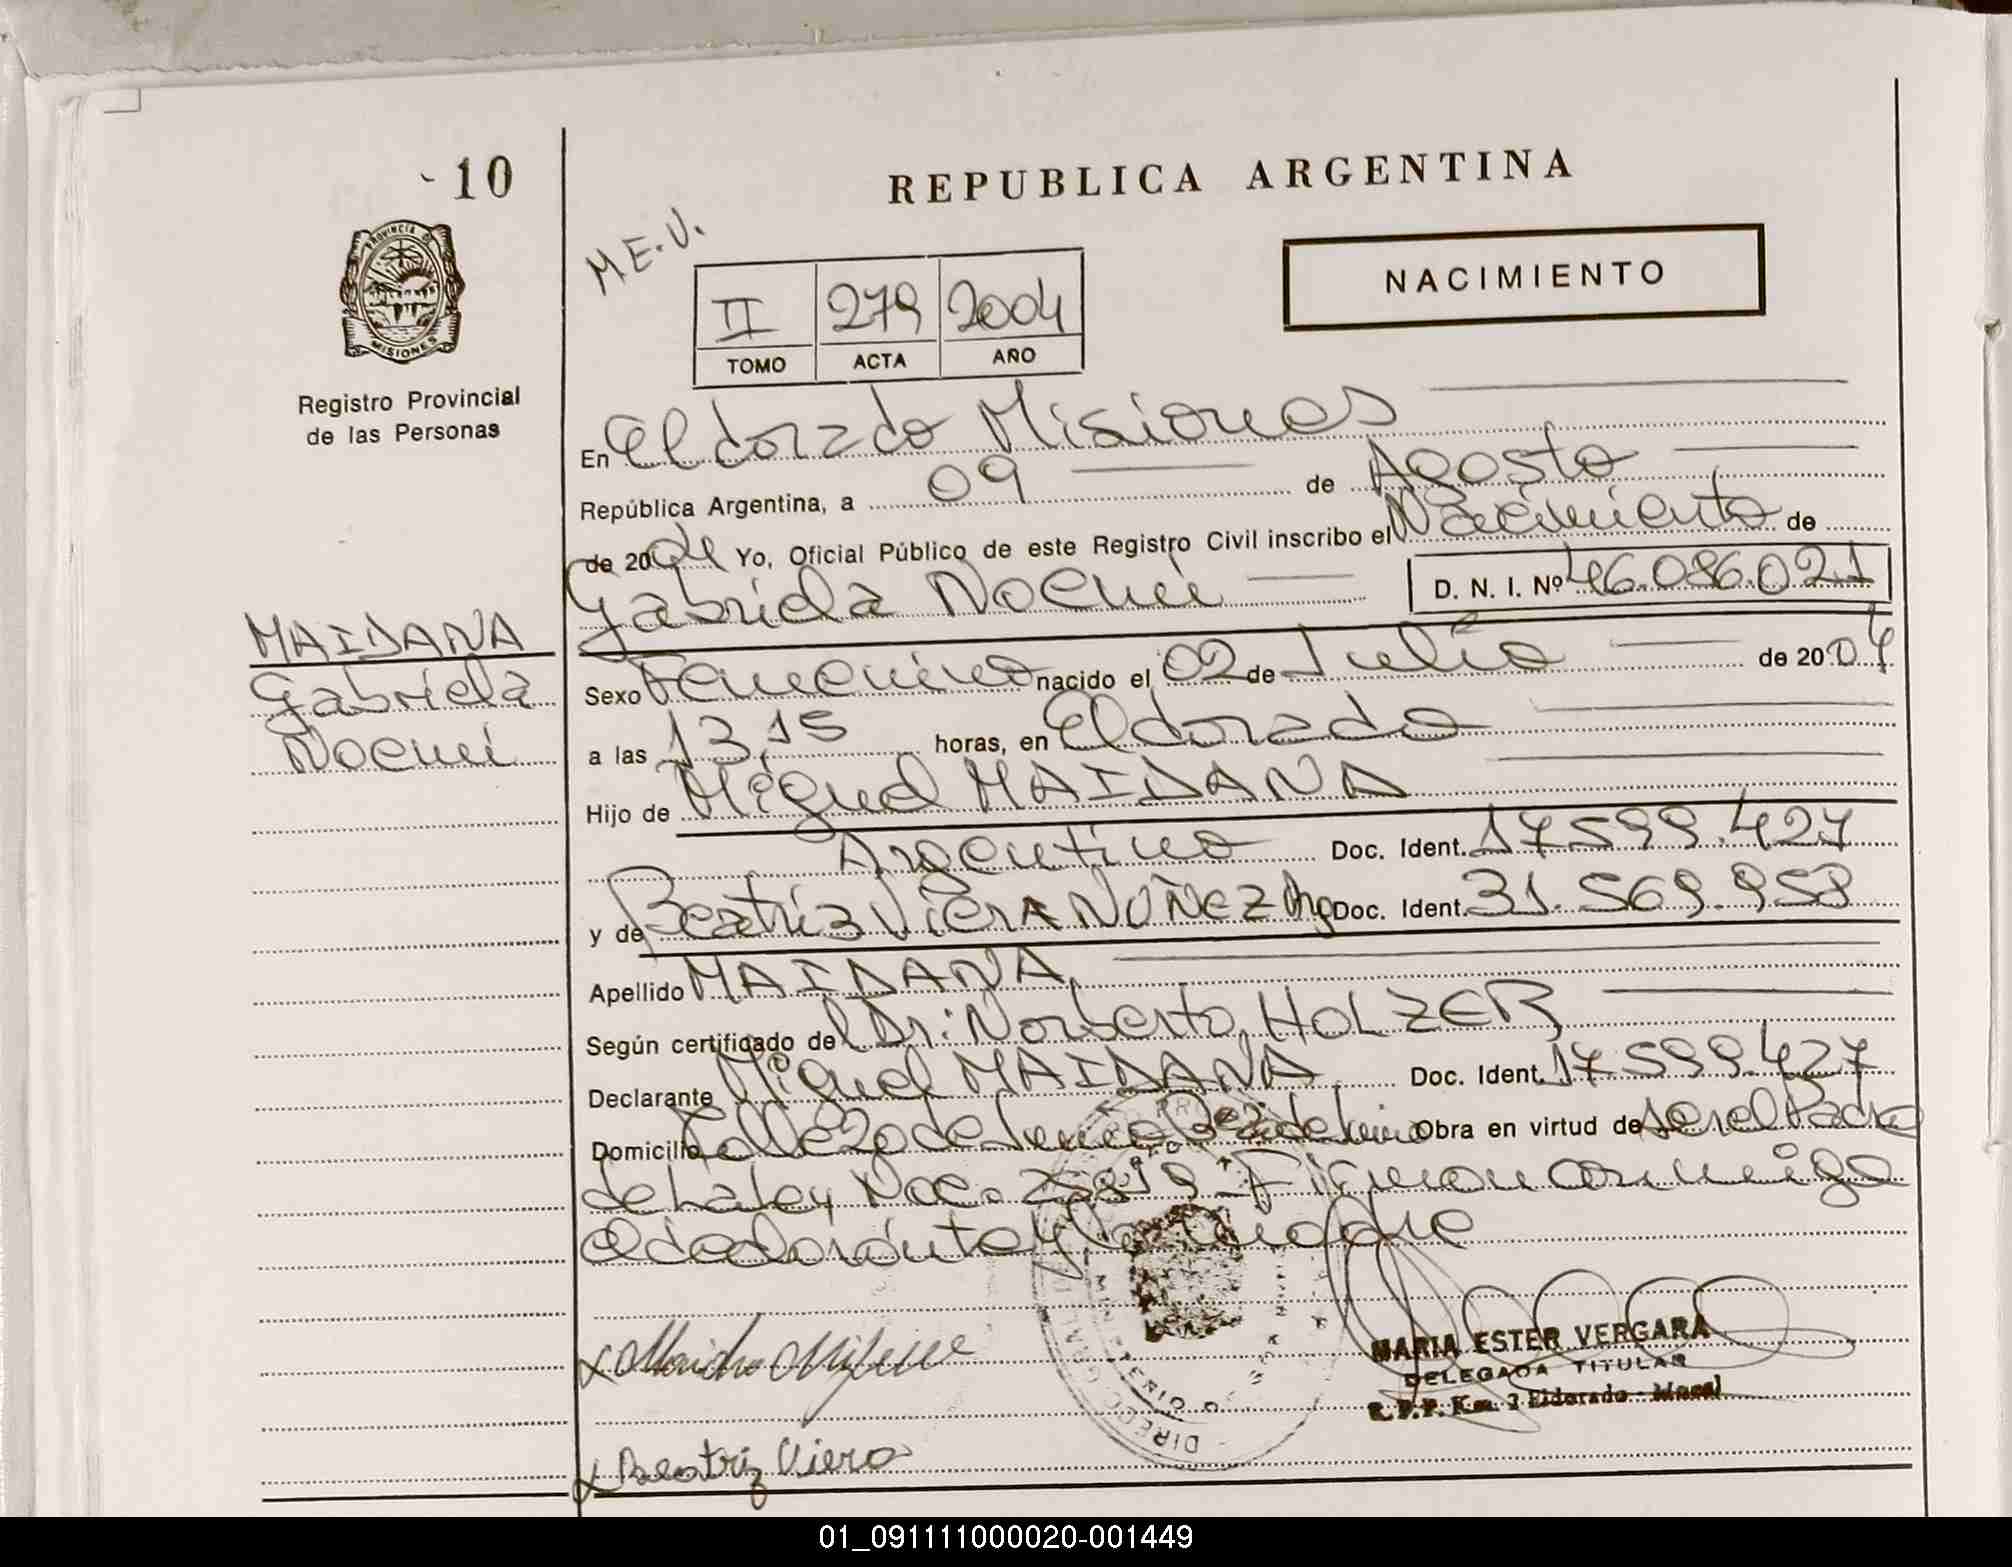 10
REPUBLICA ARGENTINA
M.E.V.
NACIMIENTO
II 279 2004
TOMO ACTA AÑO
PROVINCIA DE
MISIONES
Registro Provincial
de las Personas
En Eldorado Misiones
República Argentina, a 09 de Agosto
de 2004 Yo, Oficial Público de este Registro Civil inscribo el Nacimiento de
Gabriela Noemi D. N. I. Nº 46.086.021
MAIDANA
Gabriela
Noemi
Sexo Femenino nacido el 02 de Julio de 2004
a las 13,15 horas, en Eldorado
Hijo de Miguel MAIDANA
Argentino Doc. Ident. 17.599.427
y de Beatriz Viera NUÑEZ Arg Doc. Ident. 31.569.958
Apellido MAIDANA
Según certificado del Dr: Norberto, HOLZER
Declarante Miguel MAIDANA Doc. Ident. 17.599.427
Domicilio Calle 20 de Junio Obra en virtud de ser el Padre
de la ley Nac. Firman conmigo
el declarante y la madre
MARIA ESTER VERGARA
DELEGADA TITULAR
R.P.P. Km. 2 Eldorado - Mnes
Beatriz Viera
01_091111000020-001449